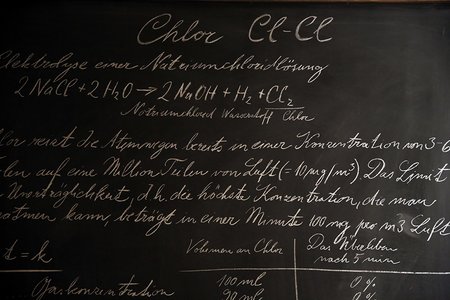 Chlor Cl-Cl
Elektrolyse einer Natriumchloridlösung
2 NaCl + 2 H₂O → 2 NaOH + H₂ + Cl₂
Natriumchlorid Wasserstoff Chlor
die Atemwegen bereits in einer Konzentration von 3-6
auf eine Million Teilen von Luft (= 10 µg/m³). Das Limit
Unerträglichkeit, d.h. die höchste Konzentration, die man
kann, beträgt in einer Minute 100 mg pro m3 Luft
t = k Volumen an Chlor Das Überleben
nach 5 min
Gaskonzentration 100 ml 0 %
90 ml 0 %